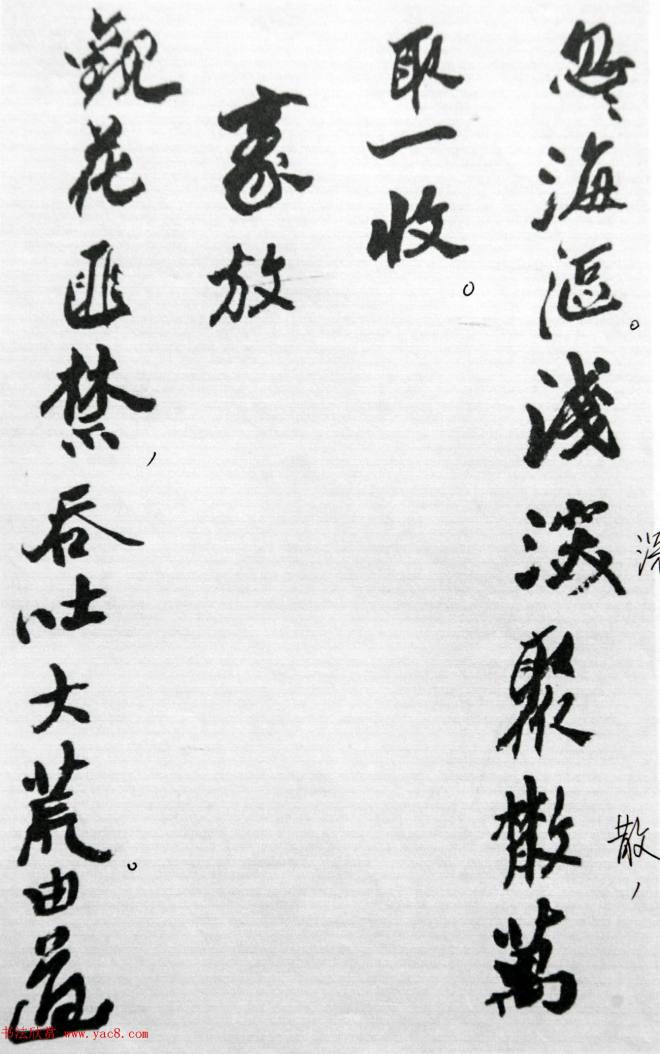 忽〻海漚。淺深聚散，萬
深
散
取一收。
豪放
觀花匪禁，吞吐大荒。由道
书法欣赏 www.yac8.com